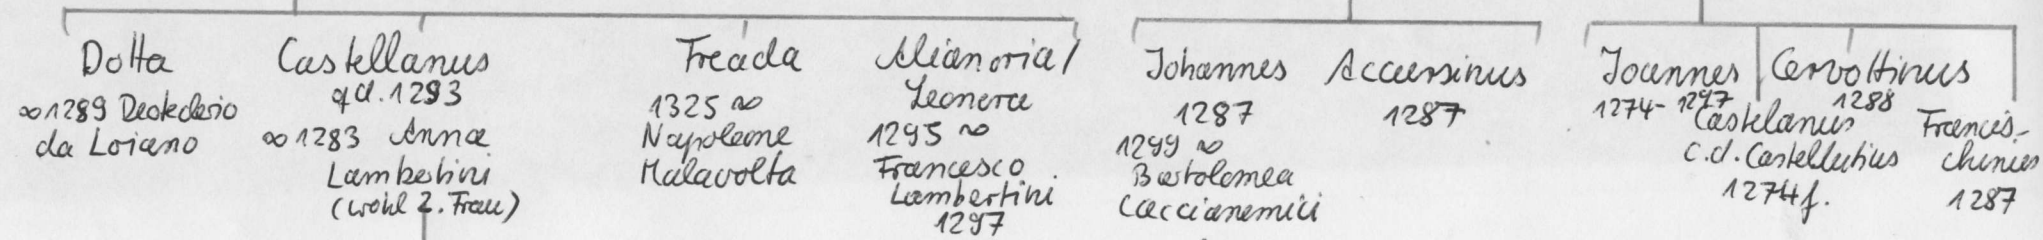 Dotta
∞1289 Deotederio
da Loiano
Castellanus
qd. 1293
∞ 1283 Anna
Lambertini
(wohl 2. Frau)
Freada
1325 ∞
Napoleone
Malavolta
Alianoria/
Leonora
1295 ∞
Francesco
Lambertini
1297
Johannes
1287
1299 ∞
Bartolomea
Caccianemici
Accursinus
1287
Joannes
1274-1297
Castelanus
c.d. Castellutius
1274f.
Cervottinus
1288
Francis-
chinus
1287